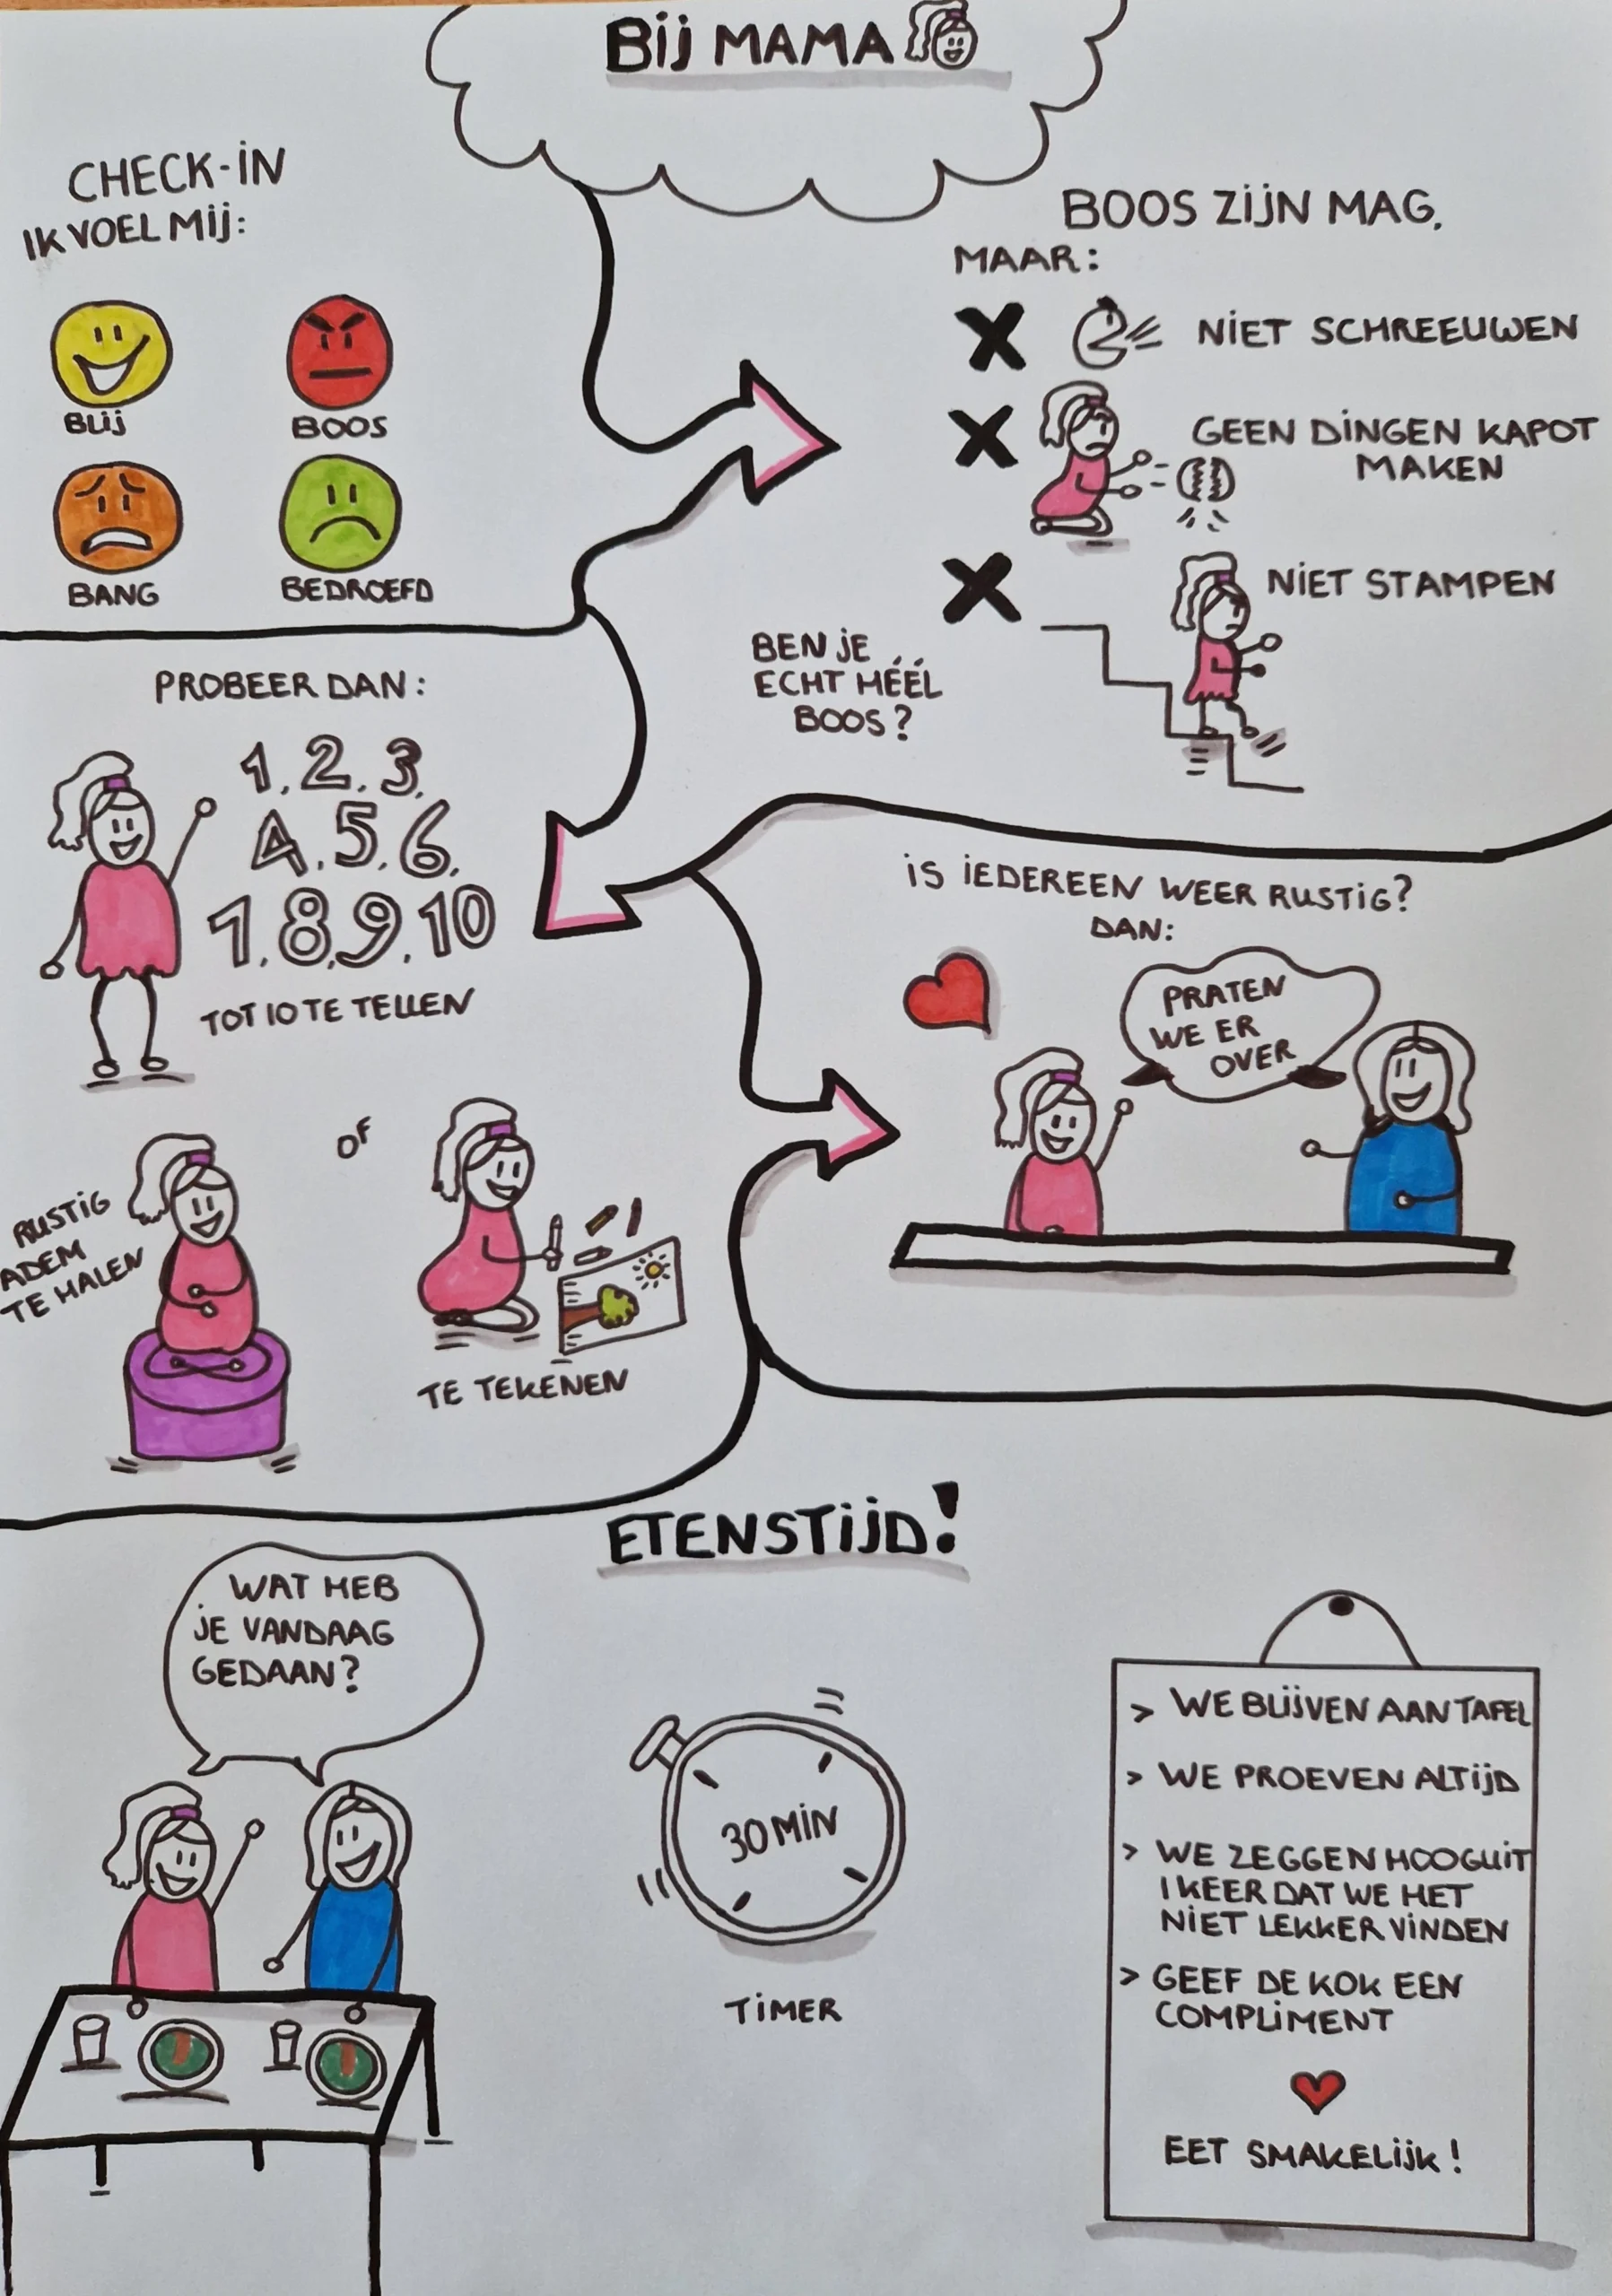 BIJ MAMA
CHECK-IN
IK VOEL MIJ:
BLIJ
BOOS
BANG
BEDROEFD
BOOS ZIJN MAG,
MAAR:
NIET SCHREEUWEN
GEEN DINGEN KAPOT
MAKEN
NIET STAMPEN
BEN JE
ECHT HÉÉL
BOOS?
PROBEER DAN:
1, 2, 3,
4, 5, 6,
7, 8, 9, 10
TOT 10 TE TELLEN
RUSTIG
ADEM
TE HALEN
OF
TE TEKENEN
IS IEDEREEN WEER RUSTIG?
DAN:
PRATEN
WE ER
OVER
ETENSTIJD!
WAT HEB
JE VANDAAG
GEDAAN?
30 MIN
TIMER
> WE BLIJVEN AAN TAFEL
> WE PROEVEN ALTIJD
> WE ZEGGEN HOOGUIT
1 KEER DAT WE HET
NIET LEKKER VINDEN
> GEEF DE KOK EEN
COMPLIMENT
EET SMAKELIJK!